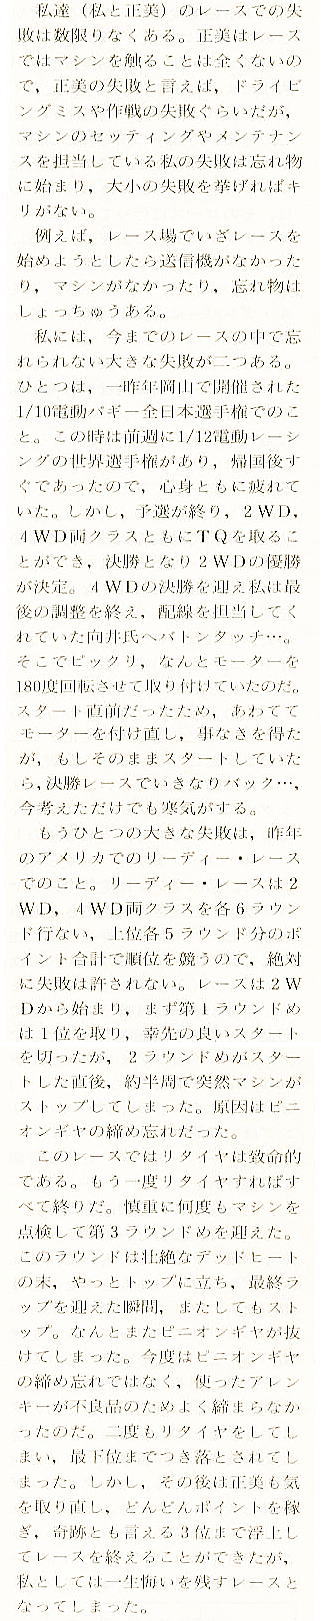 私達（私と正美）のレースでの失
敗は数限りなくある。正美はレース
ではマシンを触ることは全くないの
で，正美の失敗と言えば，ドライビ
ングミスや作戦の失敗ぐらいだが，
マシンのセッティングやメンテナン
スを担当している私の失敗は忘れ物
に始まり，大小の失敗を挙げればキ
リがない。
　例えば，レース場でいざレースを
始めようとしたら送信機がなかった
り，マシンがなかったり，忘れ物は
しょっちゅうある。
　私には，今までのレースの中で忘
れられない大きな失敗が二つある。
ひとつは，一昨年岡山で開催された
1/10電動バギー全日本選手権でのこ
と。この時は前週に1/12電動レーシ
ングの世界選手権があり，帰国後す
ぐであったので，心身ともに疲れて
いた。しかし，予選が終り，２ＷＤ，
４ＷＤ両クラスともにＴＱを取るこ
とができ，決勝となり２ＷＤの優勝
が決定。４ＷＤの決勝を迎え私は最
後の調整を終え，配線を担当してく
れていた向井氏へバトンタッチ…。
そこでビックリ，なんとモーターを
180度回転させて取り付けていたのだ。
スタート直前だったため，あわてて
モーターを付け直し，事なきを得た
が，もしそのままスタートしていた
ら，決勝レースでいきなりバック…，
今考えただけでも寒気がする。
　もうひとつの大きな失敗は，昨年
のアメリカでのリーディー・レース
でのこと。リーディー・レースは２
ＷＤ，４ＷＤ両クラスを各６ラウン
ド行ない，上位各５ラウンド分のポ
イント合計で順位を競うので，絶対
に失敗は許されない。レースは２Ｗ
Ｄから始まり，まず第１ラウンドめ
は１位を取り，幸先の良いスタート
を切ったが，２ラウンドめがスター
トした直後，約半周で突然マシンが
ストップしてしまった。原因はピニ
オンギヤの締め忘れだった。
　このレースではリタイヤは致命的
である。もう一度リタイヤすればす
べて終りだ。慎重に何度もマシンを
点検して第３ラウンドめを迎えた。
このラウンドは壮絶なデッドヒート
の末，やっとトップに立ち，最終ラ
ップを迎えた瞬間，またしてもスト
ップ。なんとまたピニオンギヤが抜
けてしまった。今度はピニオンギヤ
の締め忘れではなく，使ったアレン
キーが不良品のためよく締まらなか
ったのだ。二度もリタイヤをしてし
まい，最下位までつき落とされてし
まった。しかし，その後は正美も気
を取り直し，どんどんポイントを稼
ぎ，奇跡とも言える３位まで浮上し
てレースを終えることができたが，
私としては一生悔いを残すレースと
なってしまった。